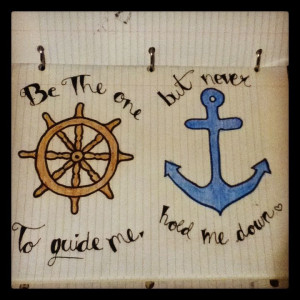 Be The one
To guide me,
but never
hold me down